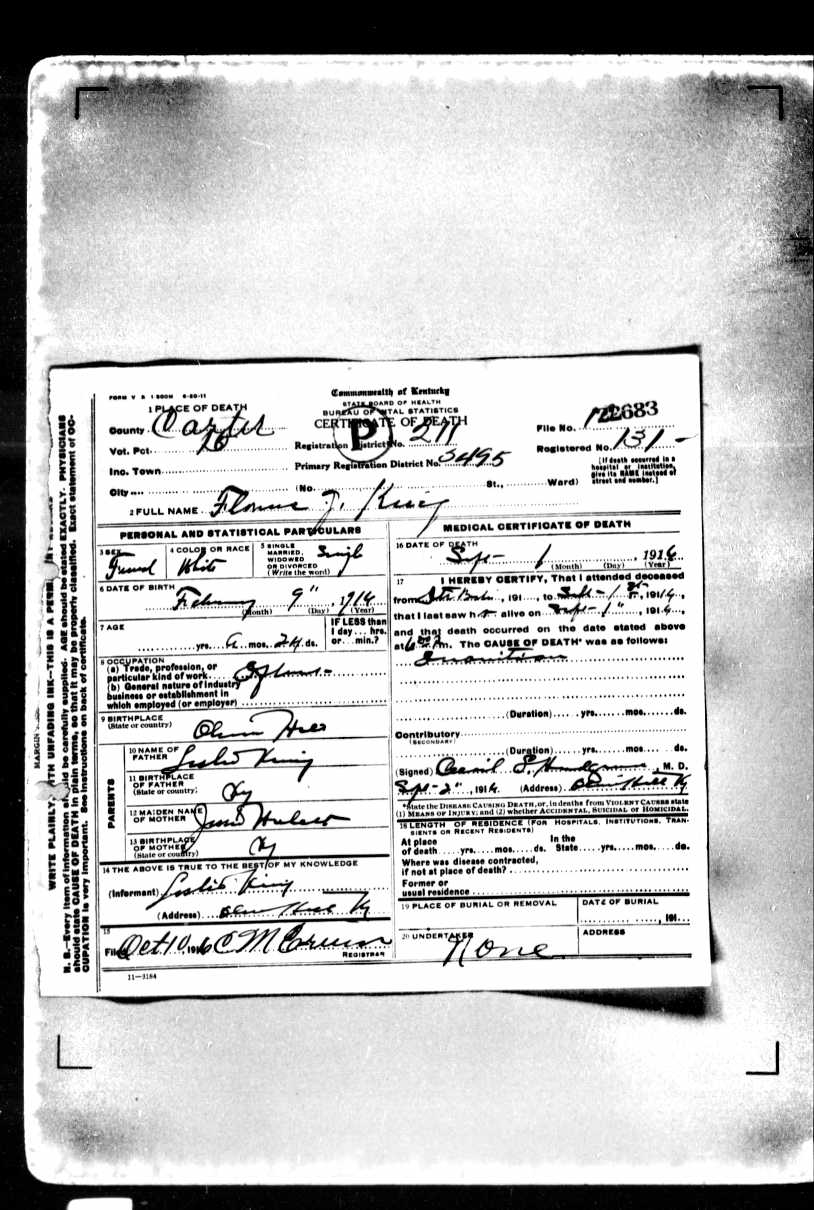 FORM V S 1 500M 6-20-11
Commonwealth of Kentucky
STATE BOARD OF HEALTH
BUREAU OF VITAL STATISTICS
CERTIFICATE OF DEATH
P
1 PLACE OF DEATH
County Carter
Vot. Pct. 16
Inc. Town
City (No. St., Ward)
Registration District No. 211
Primary Registration District No. 5495
File No. 22683
Registered No. 131
[If death occurred in a hospital or institution, give its NAME instead of street and number.]
2 FULL NAME King
PERSONAL AND STATISTICAL PARTICULARS
3 SEX
4 COLOR OR RACE White
5 SINGLE MARRIED, WIDOWED OR DIVORCED (Write the word) Single
6 DATE OF BIRTH
9", 1916
(Month) (Day) (Year)
7 AGE
yrs. mos. ds.
IF LESS than 1 day... hrs. or... min.?
8 OCCUPATION
(a) Trade, profession, or particular kind of work
(b) General nature of industry business or establishment in which employed (or employer)
9 BIRTHPLACE
(State or country)
PARENTS
10 NAME OF FATHER Leslie King
11 BIRTHPLACE OF FATHER (State or country) Ky
12 MAIDEN NAME OF MOTHER
13 BIRTHPLACE OF MOTHER (State or country) Ky
14 THE ABOVE IS TRUE TO THE BEST OF MY KNOWLEDGE
(Informant) Leslie King
(Address) Olive Hill Ky
15
Filed Oct 10, 1916 C M
REGISTRAR
11—3184
MEDICAL CERTIFICATE OF DEATH
16 DATE OF DEATH
Sept 1, 1916
(Month) (Day) (Year)
17 I HEREBY CERTIFY, That I attended deceased
from, 191, to Sept 1st, 1916,
that I last saw h alive on Sept 1", 1916,
and that death occurred on the date stated above
at m. The CAUSE OF DEATH* was as follows:
Inanition
(Duration) yrs. mos. ds.
Contributory
(SECONDARY)
(Duration) yrs. mos. ds.
(Signed), M. D.
Sept 2", 1916 (Address) Olive Hill Ky
*State the DISEASE CAUSING DEATH, or, in deaths from VIOLENT CAUSES state (1) MEANS OF INJURY; and (2) whether ACCIDENTAL, SUICIDAL or HOMICIDAL.
18 LENGTH OF RESIDENCE (FOR HOSPITALS, INSTITUTIONS, TRANSIENTS OR RECENT RESIDENTS)
At place of death yrs. mos. ds. In the State yrs. mos. ds.
Where was disease contracted, if not at place of death?
Former or usual residence
19 PLACE OF BURIAL OR REMOVAL
DATE OF BURIAL
, 191
20 UNDERTAKER
None
ADDRESS
WRITE PLAINLY, WITH UNFADING INK—THIS IS A
N. B.—Every item of information should be carefully supplied. AGE should be stated EXACTLY. PHYSICIANS
should state CAUSE OF DEATH in plain terms, so that it may be properly classified. Exact statement of OC-
CUPATION is very important. See instructions on back of certificate.